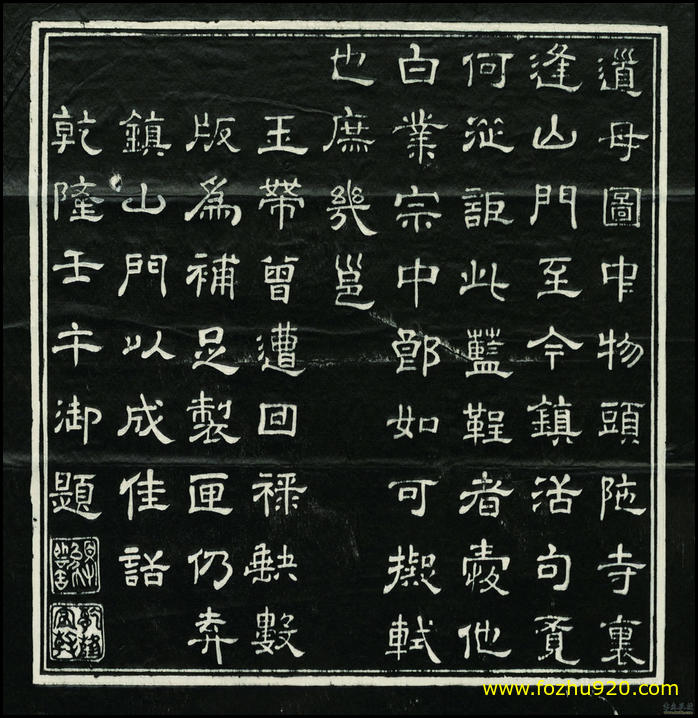 道母圖中物頭陀寺裏
逢山門至今鎮活句覓
何從詎此藍鞓者發他
白業宗中郎如可擬軾
也庶幾邕
玉帶曾遭回祿缺數
版爲補足製匣仍弆
鎮山門以成佳話
乾隆壬午御題
乾隆宸翰
www.fozhu920.com